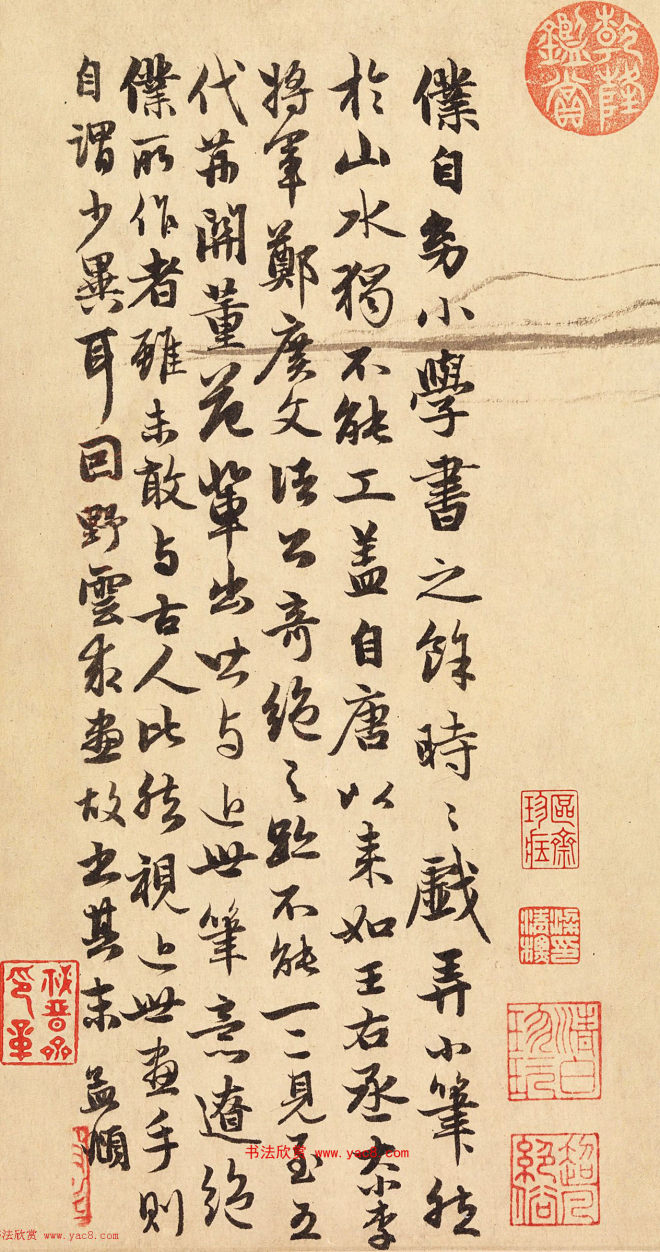 僕自幼小學書之餘時〻戲弄小筆然
於山水獨不能工盖自唐以来如王右丞大小李
將軍鄭廣文諸公奇絶之跡不能一二見至五
代荊關董范輩出皆与近世筆意遼絶
僕所作者雖未敢与古人比然視近世畫手則
自謂少異耳因野雲求畫故書其末 孟頫
乾隆鑑賞
珍玩
清白
超凡
絕俗
书法欣赏 www.yac8.com
书法欣赏 www.yac8.com